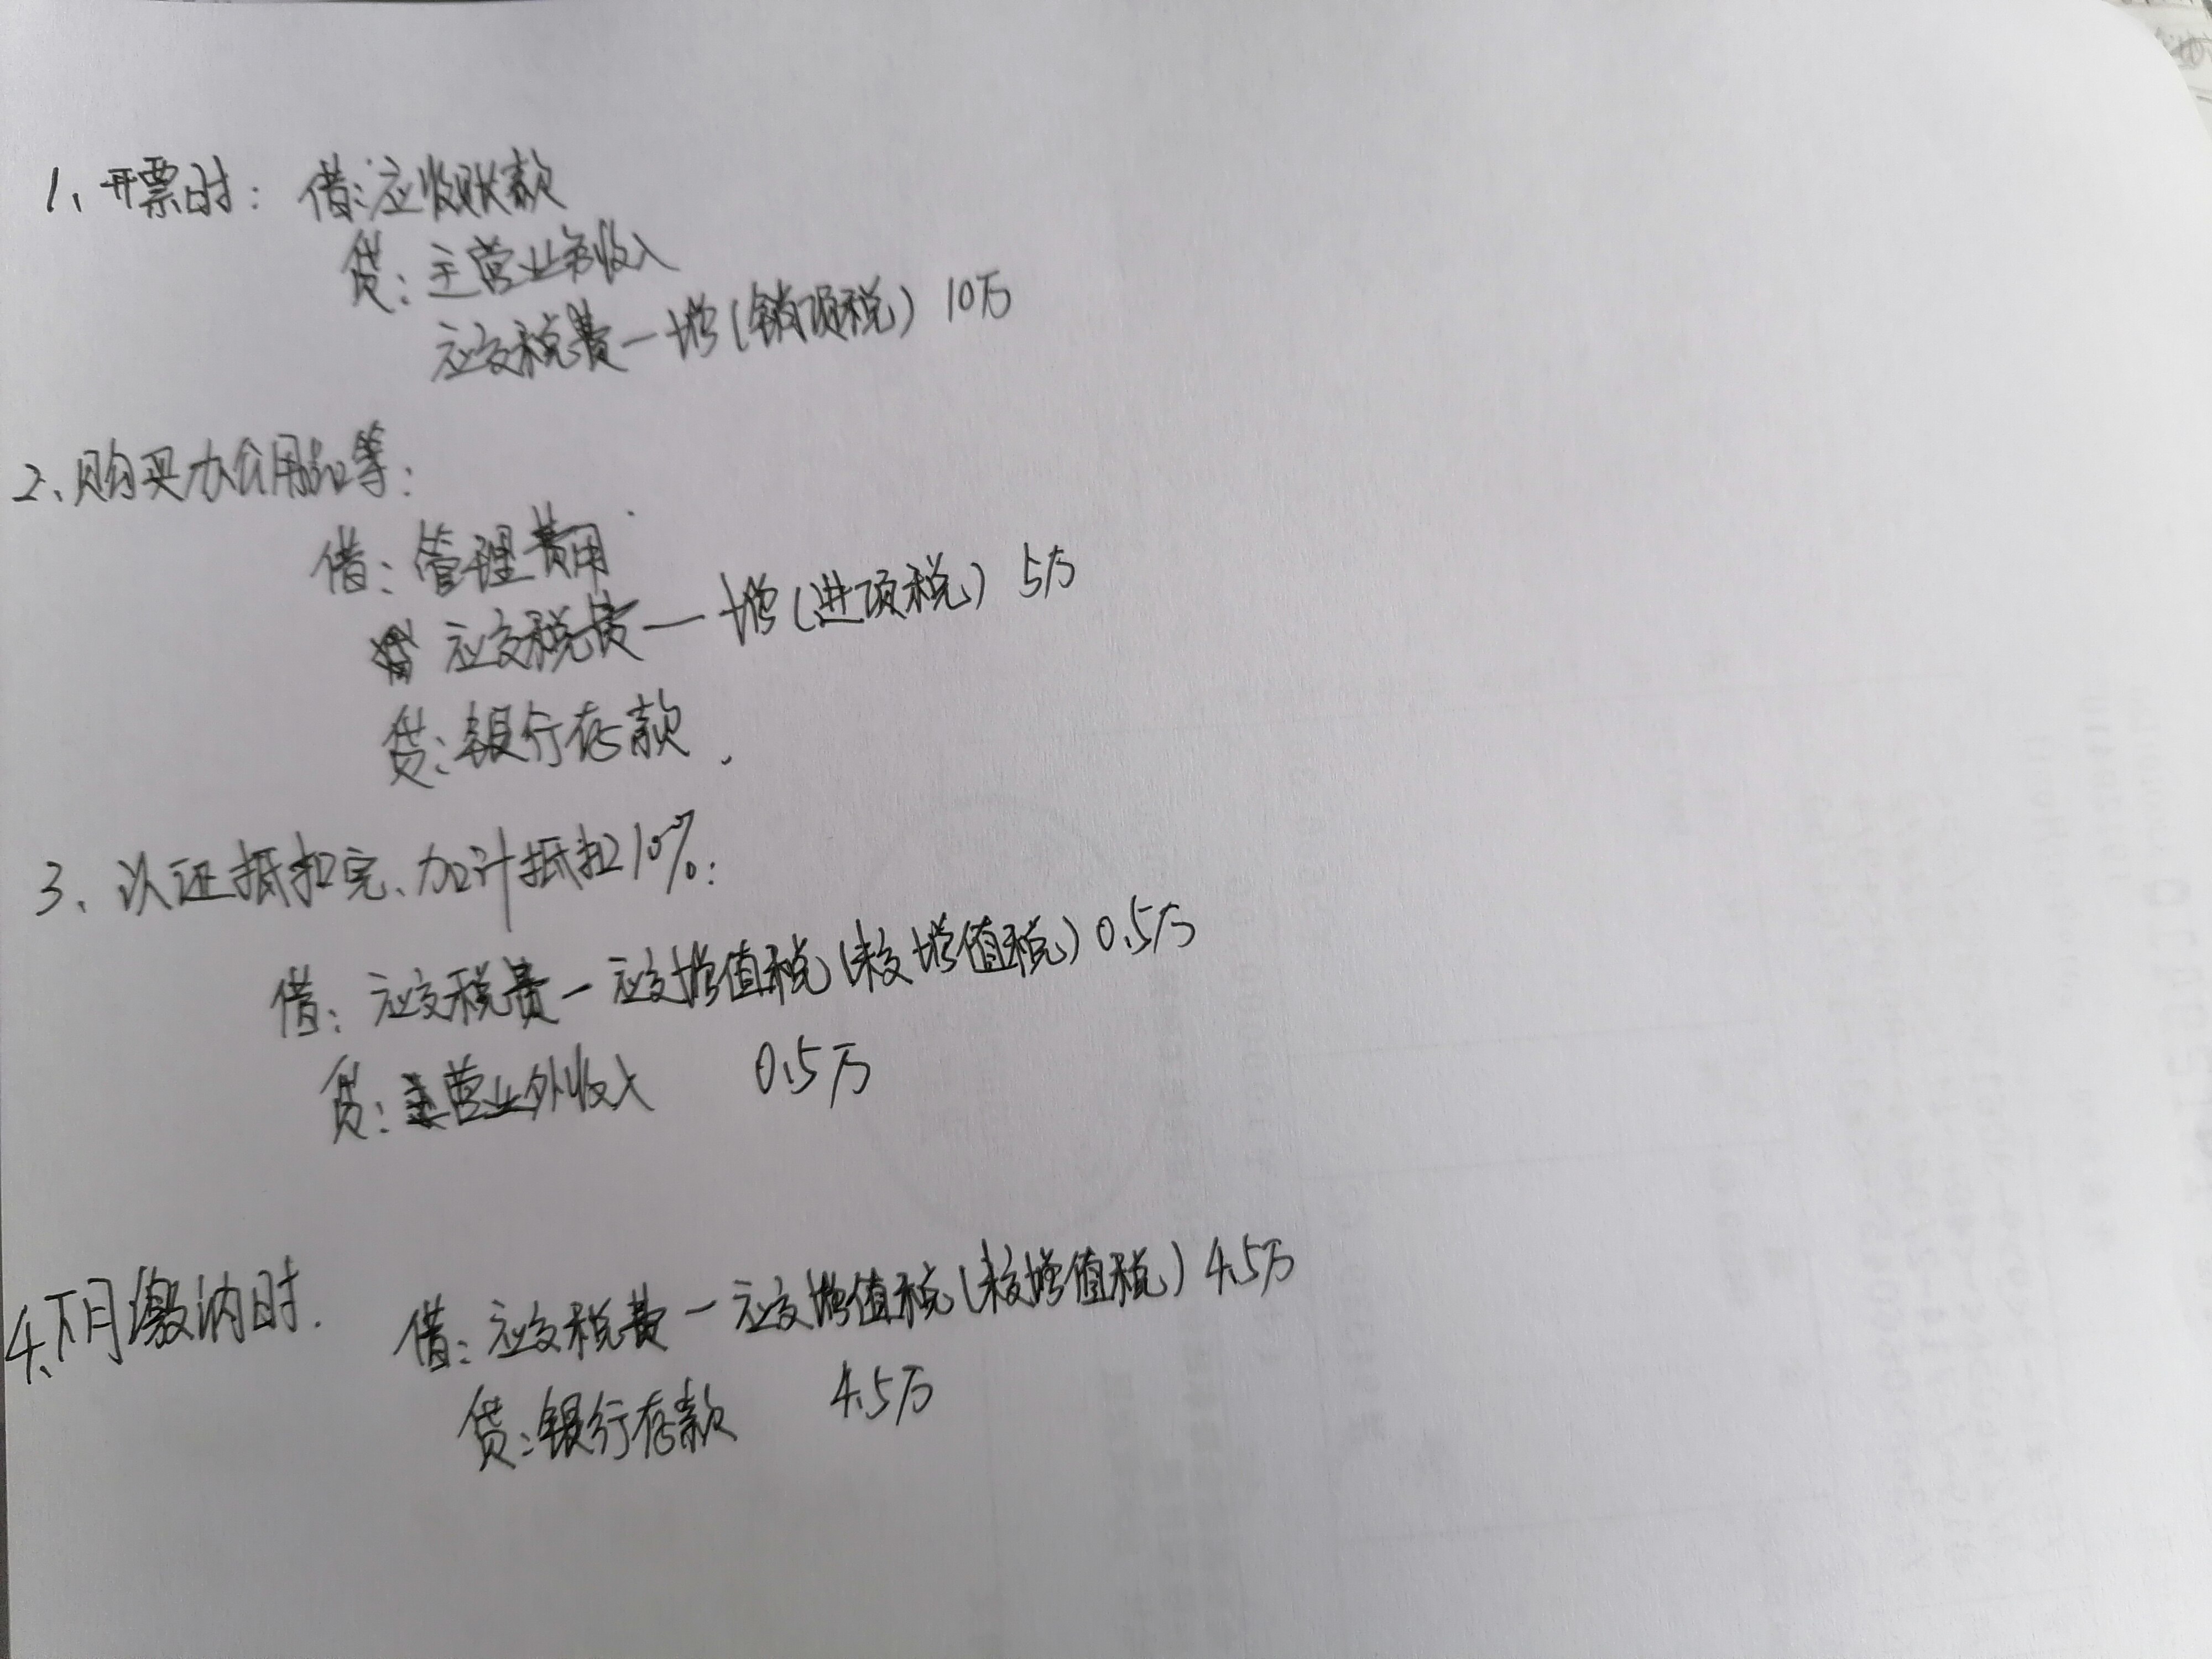 1、开票时：借：应收账款
贷：主营业务收入
应交税费一增(销项税) 10万
2、购买办公用品等：
借：管理费用
应交税费一增(进项税) 5万
贷：银行存款
3、认证抵扣完、加计抵扣10%：
借：应交税费一应交增值税(未交增值税) 0.5万
贷：营业外收入 0.5万
4、下月缴纳时.
借：应交税费一应交增值税(未交增值税) 4.5万
贷：银行存款 4.5万